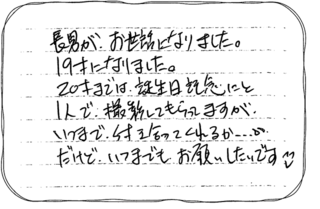 長男が、お世話になりました。
19才になりました。
20才までは、誕生日記念にと
1人で、撮影してもらってますが、
いつまで、付き合ってくれるか……が
だけど、いつまでも お願いしたいです